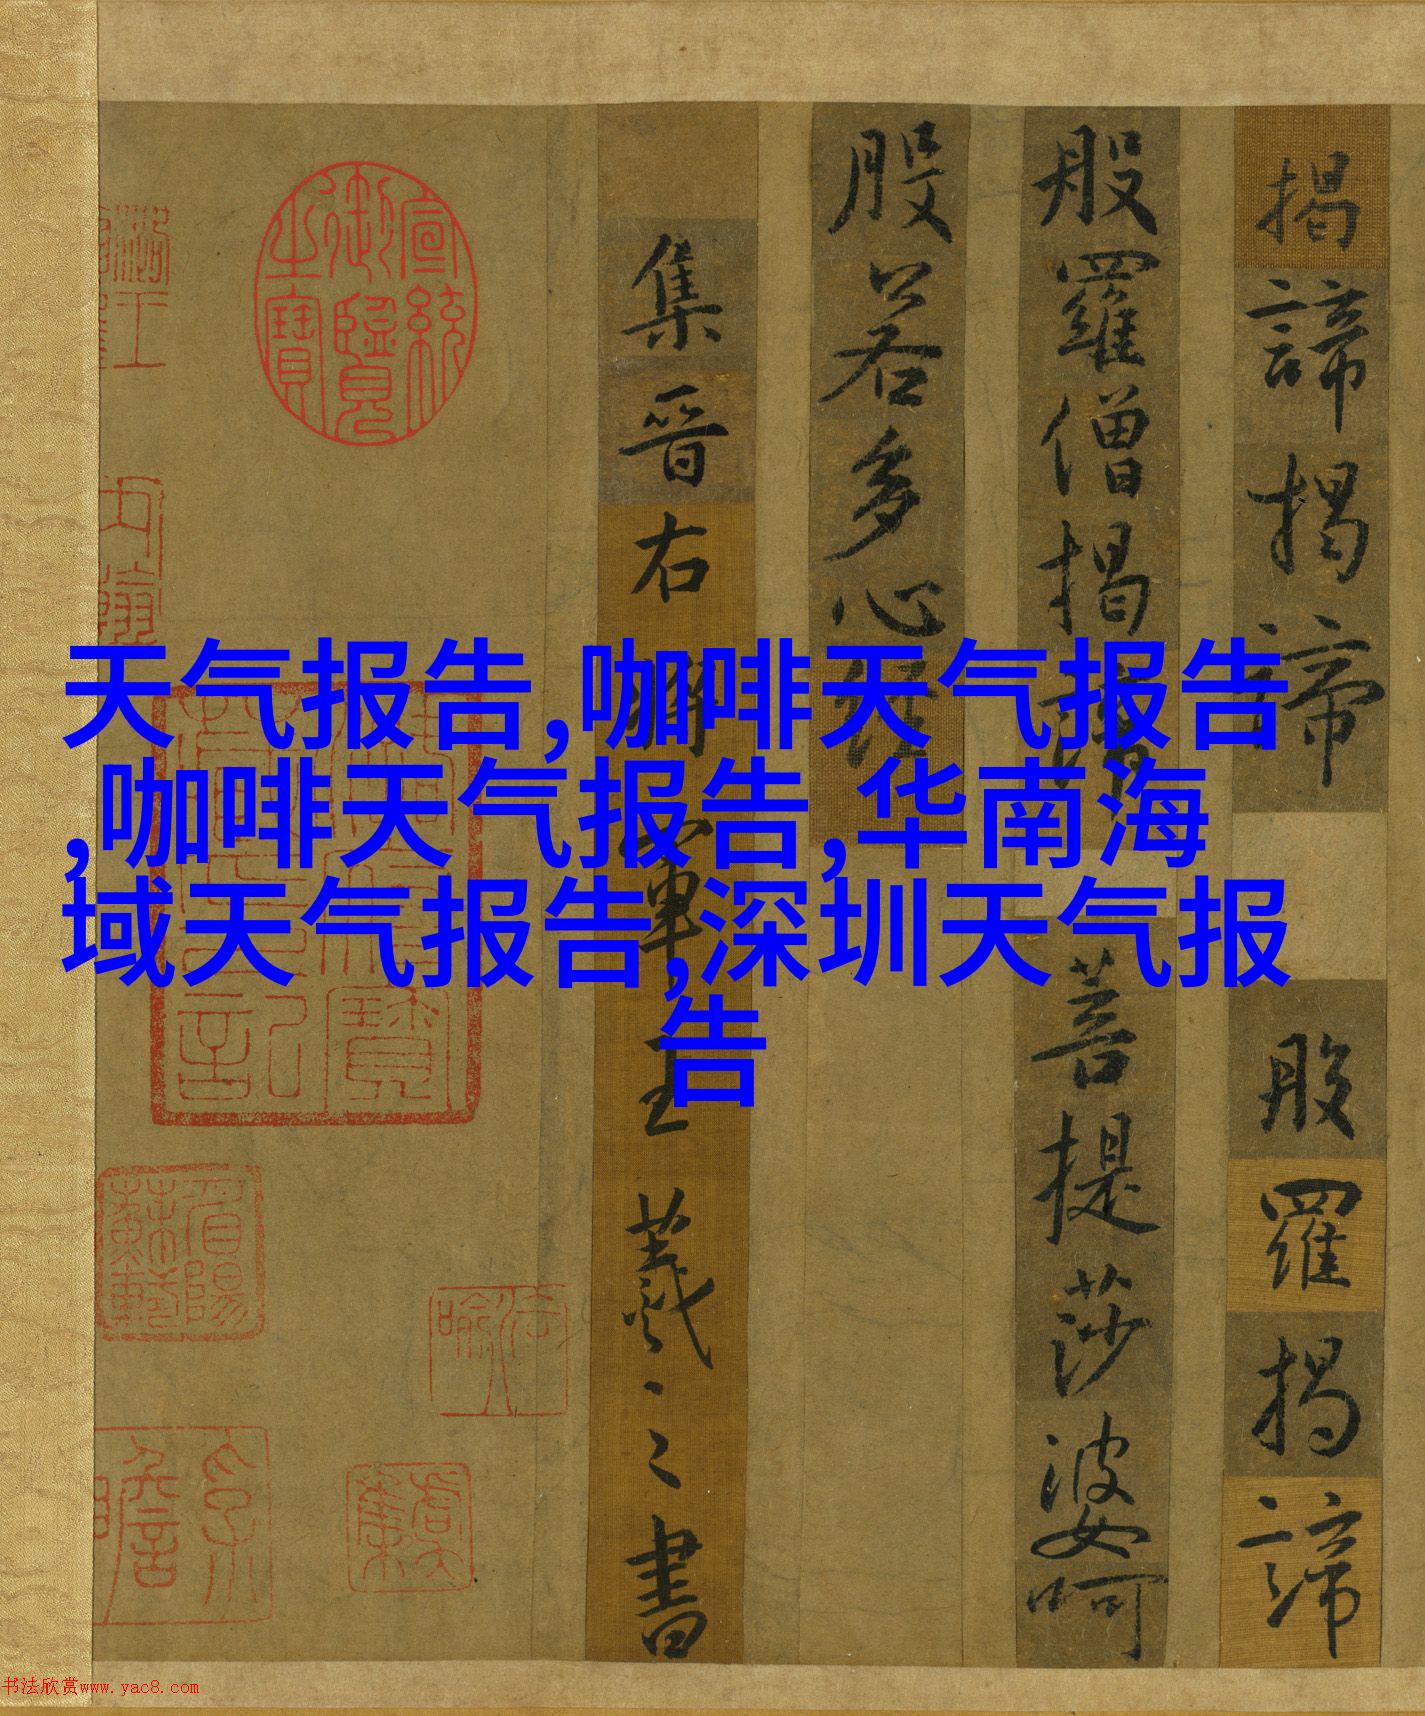 天气报告,咖啡天气报告
,咖啡天气报告,华南海
域天气报告,深圳天气报
告
揭諦揭諦 般羅揭諦
般羅僧揭諦 菩提莎婆呵
般若多心經
集晉右將軍王羲之書
宣統御覽之寶
眉陽蘇軾
書法欣赏www.yac8.com